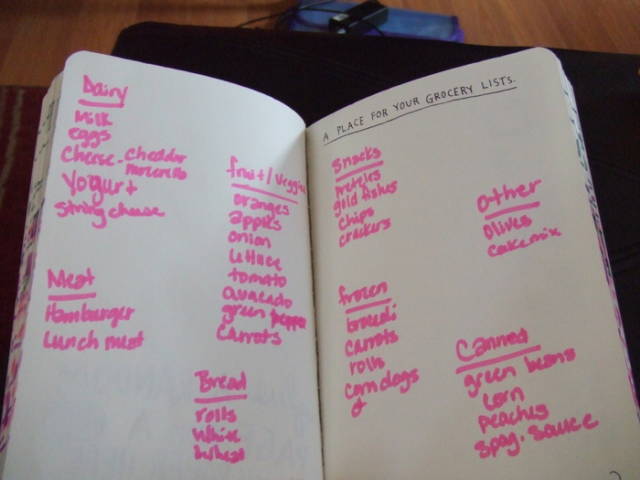 Dairy
Milk
eggs
Cheese - Cheddar
Mozerella
Yogurt
String cheese
Meat
Hamburger
Lunch meat
fruit/Veggies
oranges
apples
onion
Lettuce
tomato
avacado
green pepper
Carrots
Bread
rolls
White
Wheat
A PLACE FOR YOUR GROCERY LISTS.
Snacks
pretzles
gold fishes
Chips
Crackers
frozen
brocoli
Carrots
rolls
Corndogs
Other
Olives
Cake mix
Canned
green beans
Corn
peaches
Spag. Sauce